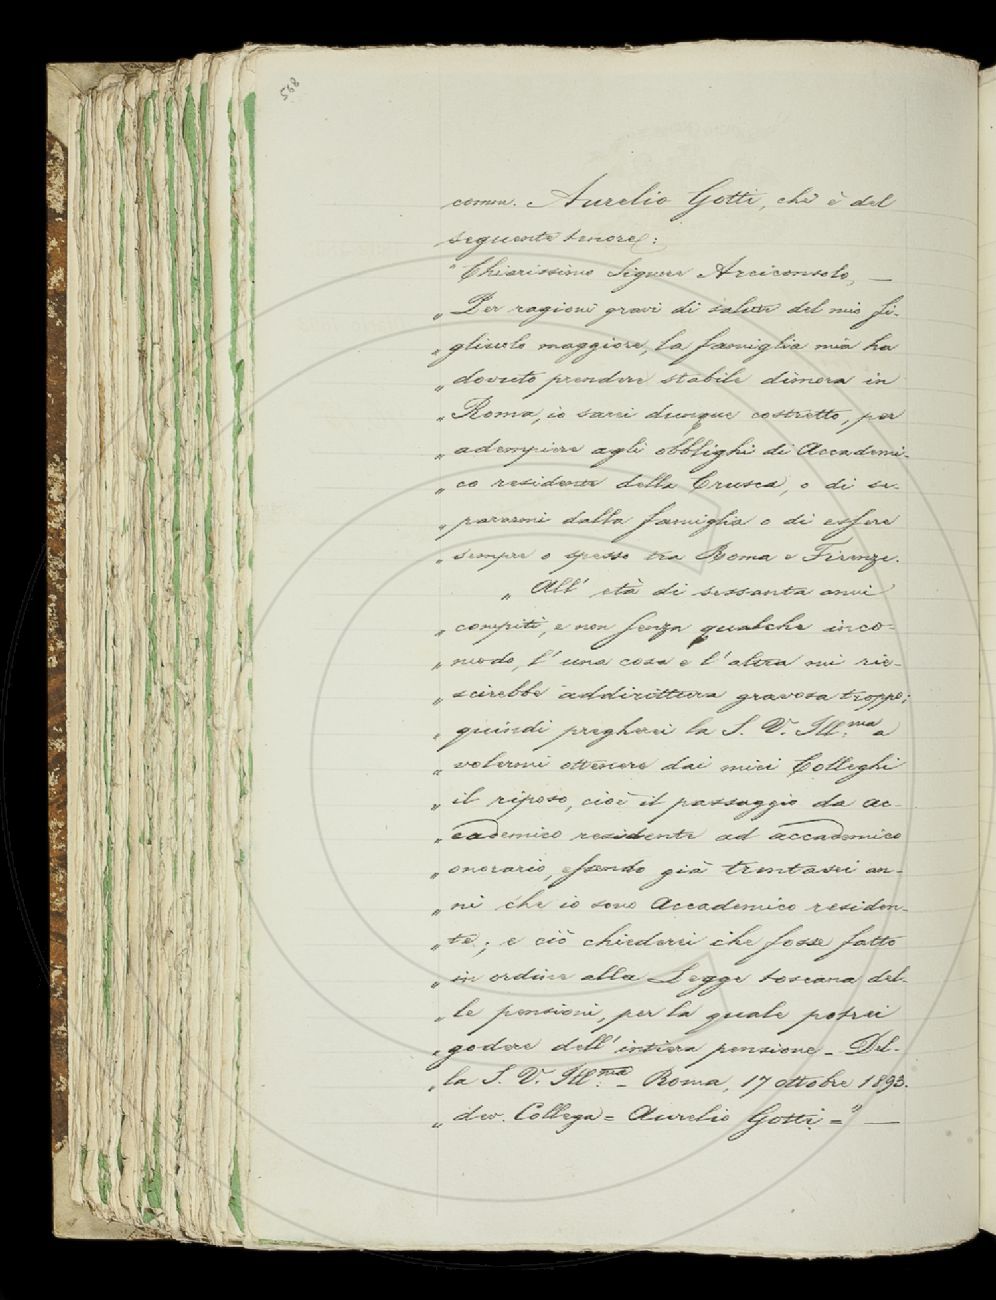 568
comm. Aurelio Gotti, che è del
seguente tenore:
"Chiarissimo Signor Arciconsolo, —
„ Per ragioni gravi di salute del mio fi-
„ gliuolo maggiore, la famiglia mia ha
„ dovuto prendere stabile dimora in
„ Roma, io sarei dunque costretto, per
„ adempiere agli obblighi di Accademi-
„ co residente della Crusca, o di se-
„ pararmi dalla famiglia o di essere
„ sempre o spesso tra Roma e Firenze.
„ All' età di sessanta anni
„ compiti, e non senza qualche inco-
„ modo, l' una cosa e l' altra mi rie-
„ scirebbe addirittura gravosa troppo;
„ quindi pregherei la S. V. Ill.ma a
„ volermi ottenere dai miei Colleghi
„ il riposo, cioè il passaggio da ac-
„ cademico residente ad accademico
„ onorario, essendo già trentasei an-
„ ni che io sono Accademico residen-
„ te; e ciò chiederei che fosse fatto
„ in ordine alla Legge toscana del-
„ le pensioni, per la quale potrei
„ godere dell' intiera pensione – Del-
„ la S. V. Ill.ma – Roma, 17 ottobre 1893.
„ dev. Collega = Aurelio Gotti = " —